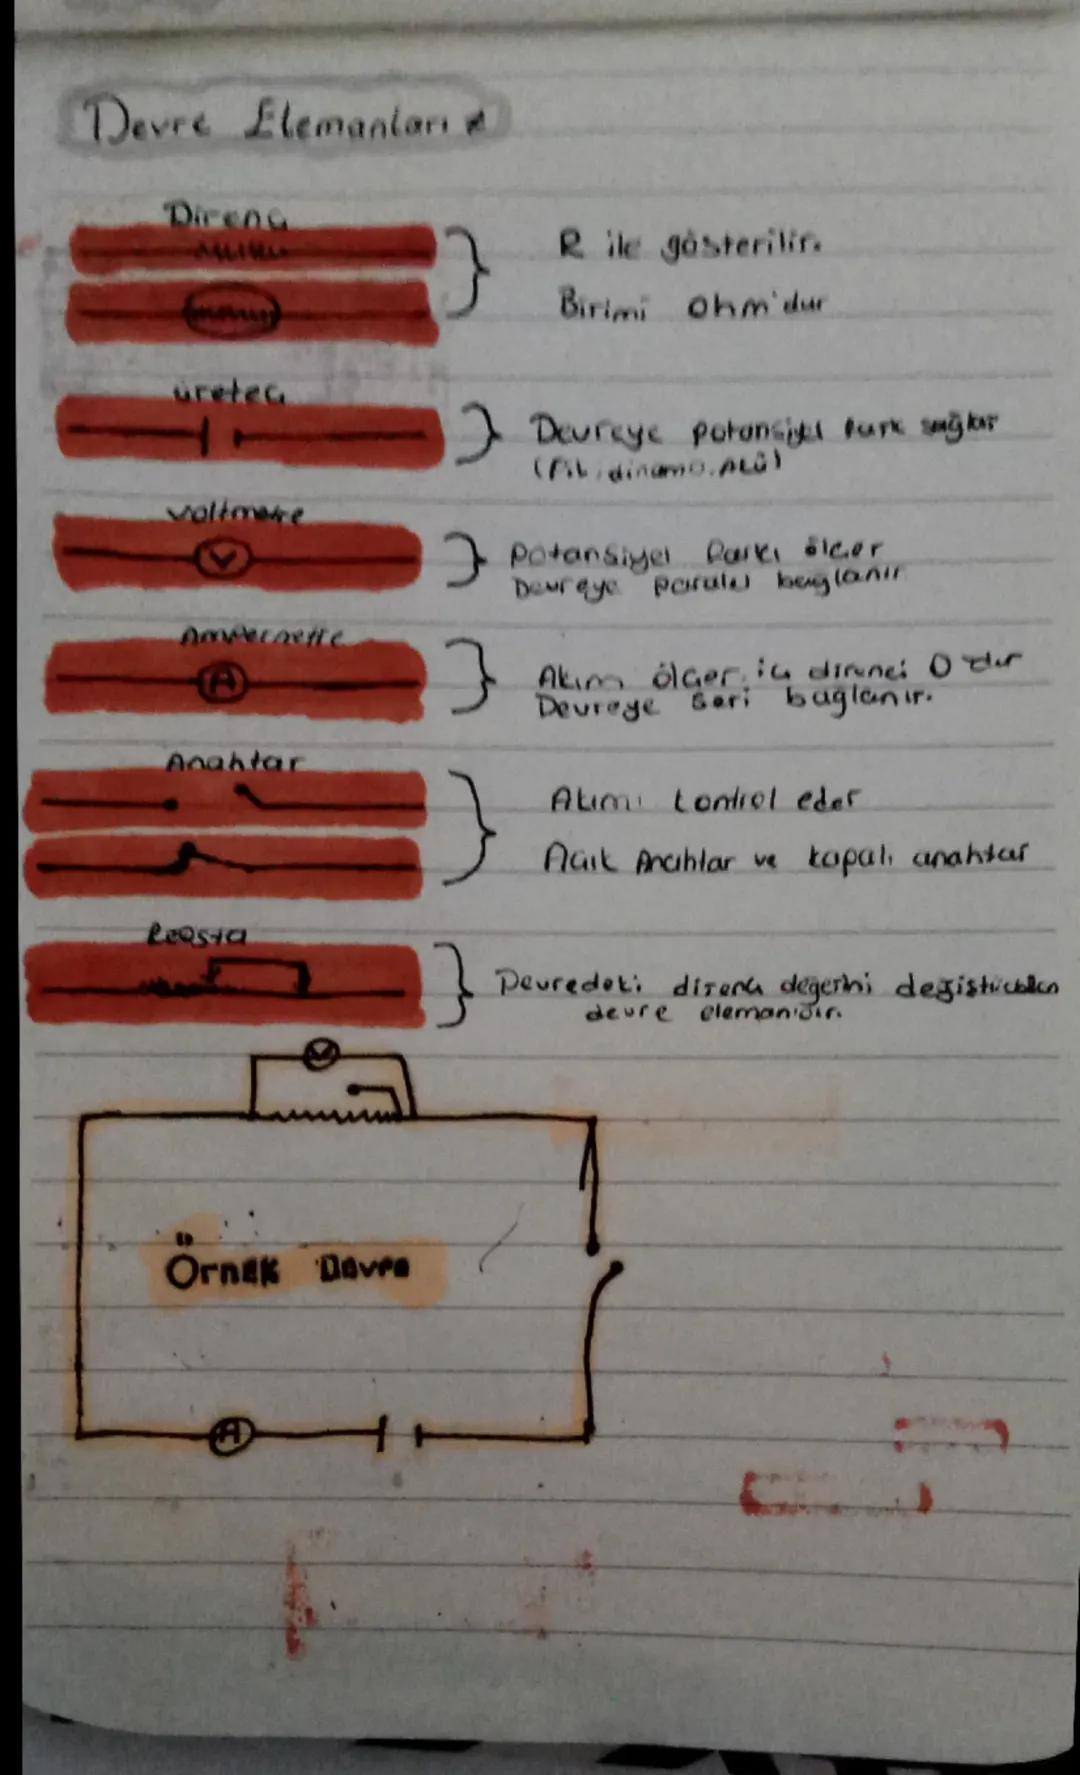 Devre Elemanları
Direnç
R ile gösterilir.
Birimi ohm'dur
üreteç
Devreye potansiyel fark sağlar
(Pil, dinamo, Akü)
voltmetre
V
Potansiyel farkı ölçer
Devreye paralel bağlanır
Ampermetre
A
Akım ölçer, iç direnci 0 dır
Devreye seri bağlanır.
Anahtar
Akımı kontrol eder
Açık Anahtar ve kapalı anahtar
Reosta
Devredeki direnç değerini değiştirebilen
devre elemanıdır.
V
Örnek Devre
A